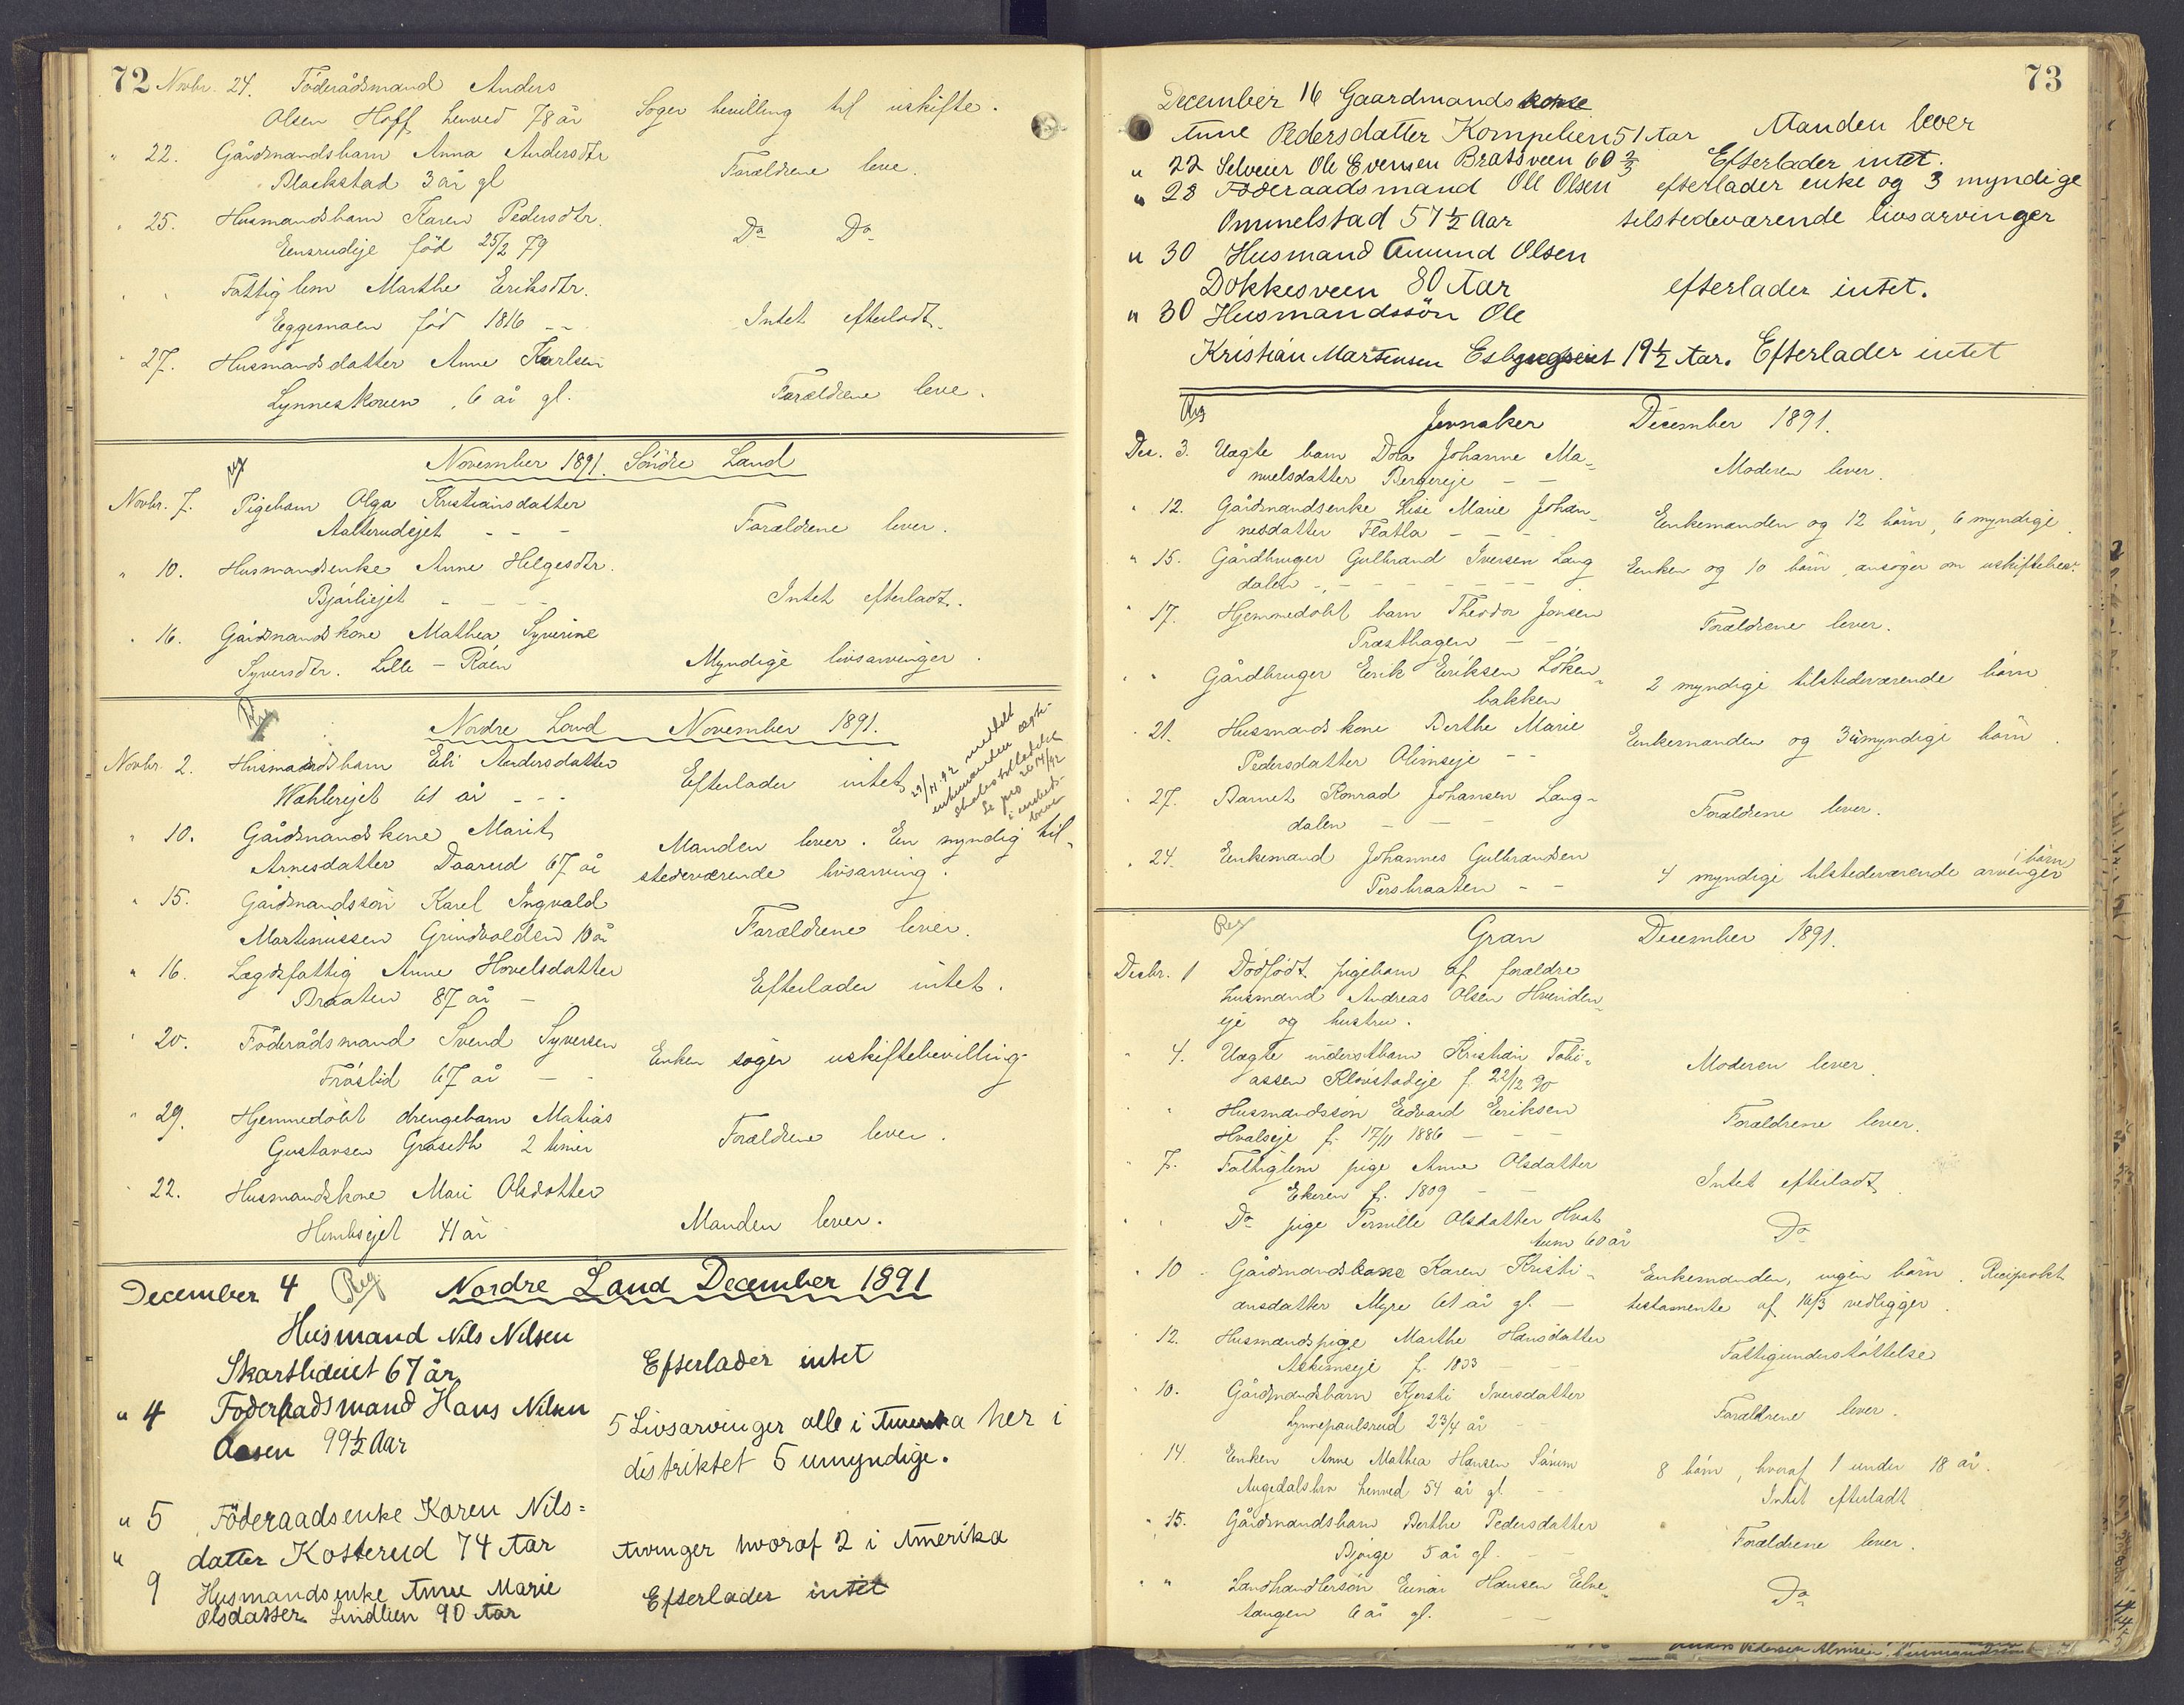 72 Novbr. 24. Föderådsmand Anders
Olsen Hoff henved 78 år Söger bevilling til uskifte.
" 22. Gårdmandsbarn Anna Andersdtr
Blackstad 3 år gl Forældrene leve.
" 25. Husmandsbarn Karen Pedersdtr.
Eensrudeje föd 25/2 79 Do Do
" " Fattiglem Marthe Eriksdtr.
Eggemoen föd 1816 -- Intet efterladt.
" 27. Husmandsdatter Anne Karlsen
Lynneskoven, 6 år gl. Forældrene leve.
Reg November 1891. Söndre Land
Novbr. 7. Pigebarn Olga Kristiansdatter
Aalterudejet - - - Forældrene lever.
" 10. Husmandsenke Anne Helgesdtr.
Bjørliejet - - - Intet efterladt.
" 16. Gårdmandskone Mathea Syverine
Syversdtr. Lille-Röen Myndige livsarvinger.
Reg Nordre Land November 1891.
Novbr. 2. Husmandsbarn Eli Andersdatter
Wahlerejet 61 år - - - Efterlader intet
" 10. Gårdmandskone Marit
Arnesdatter Daarud 67 år
Manden lever. En myndig til-
stedeværende livsarving.
" 15. Gårdmandssön Karel Ingvald
Martinussen Grindvolden 10 år Forældrene lever.
" 16. Lægdsfattig Anne Hovelsdatter
Braaten 87 år - Efterlader intet.
" 20. Föderådsmand Svend Syversen
Fröslid 67 år - - Enken söger uskiftebevilling
" 29. Hjemmedöbt drengebarn Matias
Gustavsen Gröseth 2 timer Forældrene lever.
" 22. Husmandskone Mari Olsdatter
41 år Manden lever.
December 4 Reg Nordre Land December 1891
Husmand Nils Nilsen
Skartlideiet 67 år Efterlader intet
" 4 Föderaadsmand Hans Nilsen
Aasen 99½ Aar
5 Livsarvinger alle i Amerika her i
distriktet 5 umyndige.
" 5 Föderaadsenke Karen Nils=
" datter Kosterud 74 Aar Arvinger hvoraf 2 i Amerika
9 Husmandsenke Anne Marie
Olsdatter Lindlien 90 Aar Efterlader intet
73
December 16 Gaardmandskone
Anne Pedersdatter Kompelien 51 Aar Manden lever
" 22 Selveier Ole Evensen Bratsveen 60 2/3 Efterlader intet.
" 28 Föderaadsmand Ole Olsen efterlader enke og 3 myndige
Ommelstad 57½ Aar tilstedeværende livsarvinger
" 30 Husmand Amund Olsen
Dokkesveen 80 Aar efterlader intet.
" 30 Husmandssön Ole
Kristian Martinsen 19½ Aar. Efterlader intet
Reg Jevnaker December 1891.
Dec. 3. Uægte barn Dora Johanne Ma-
nuelsdatter Bergereje - - Moderen lever.
" 12. Gårdmandsenke Lise Marie Johan-
nesdatter Flatla - - - Enkemanden og 12 börn, 6 myndige.
" 15. Gårdbruger Gulbrand Iversen Lang
dalen - - - Enken og 10 börn, ansöger om uskiftebev.
" 17. Hjemmedöbt barn Theodor Jonsen
Præsthagen - - Forældrene lever.
" " Gårdbruger Erik Eriksen Löken-
bakken 2 myndige tilstedeværende börn
" 21. Husmandskone Berthe Marie
Pedersdatter Olimseje - - Enkemanden og 3 umyndige börn.
" 27. Barnet Konrad Johansen Lang-
dalen - - - Forældrene lever.
" 24. Enkemand Johannes Gulbrandsen
Persbraaten - - 4 myndige tilstedeværende arvinger
Reg Gran December 1891.
Decbr. 1 Dödfödt pigebarn af forældre
husmand Andreas Olsen Hvinden
eje og hustru.
" 4. Uægte inderstbarn Kristian Tobi-
assen Klövstadeje f. 22/12 90 Moderen lever.
" " Husmandssön Edvard Eriksen
Hvalseje f. 17/11 1886 - - - Forældrene lever.
" 7. Fattiglem pige Anne Olsdatter
Ekeren f. 1809 - - Intet efterladt.
" " Do pige Pernille Olsdatter Hvat
tum 60 år Do
" 10 Gårdmandskone Karen Kristi-
ansdatter Myre 61 år gl. -
Enkemanden, ingen börn. Reciprokt
testamente af 16/3 vedligger.
" 12. Husmandspige Marthe Hansdatter
Askimseje f. 1833 - - - Fattigunderstöttelse
" 10. Gårdmandsbarn Kjersti Iversdatter
Lynnepaulsrud 2 3/4 år - - Forældrene lever.
" 14. Enken Anne Mathea Hansen Sörum
Augedalsbro henved 54 år gl. - -
8 börn, hvoraf 1 under 18 år.
Intet efterladt
" 15. Gårdmandsbarn Berthe Pedersdatter
Bjørge 5 år gl. - - Forældrene lever.
" " Landhandlersön Einar Hansen Eelve-
tangen 6 år gl. - - Do